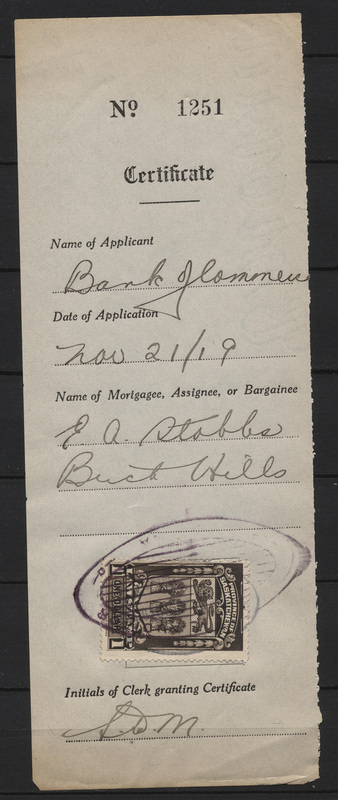 Nº 1251
Certificate
Name of Applicant
Bank of Commerce
Date of Application
Nov 21/19
Name of Mortgagee, Assignee, or Bargainee
E A. Stobbs
Birch Hills
PROVINCE OF
SASKATCHEWAN
1
Initials of Clerk granting Certificate